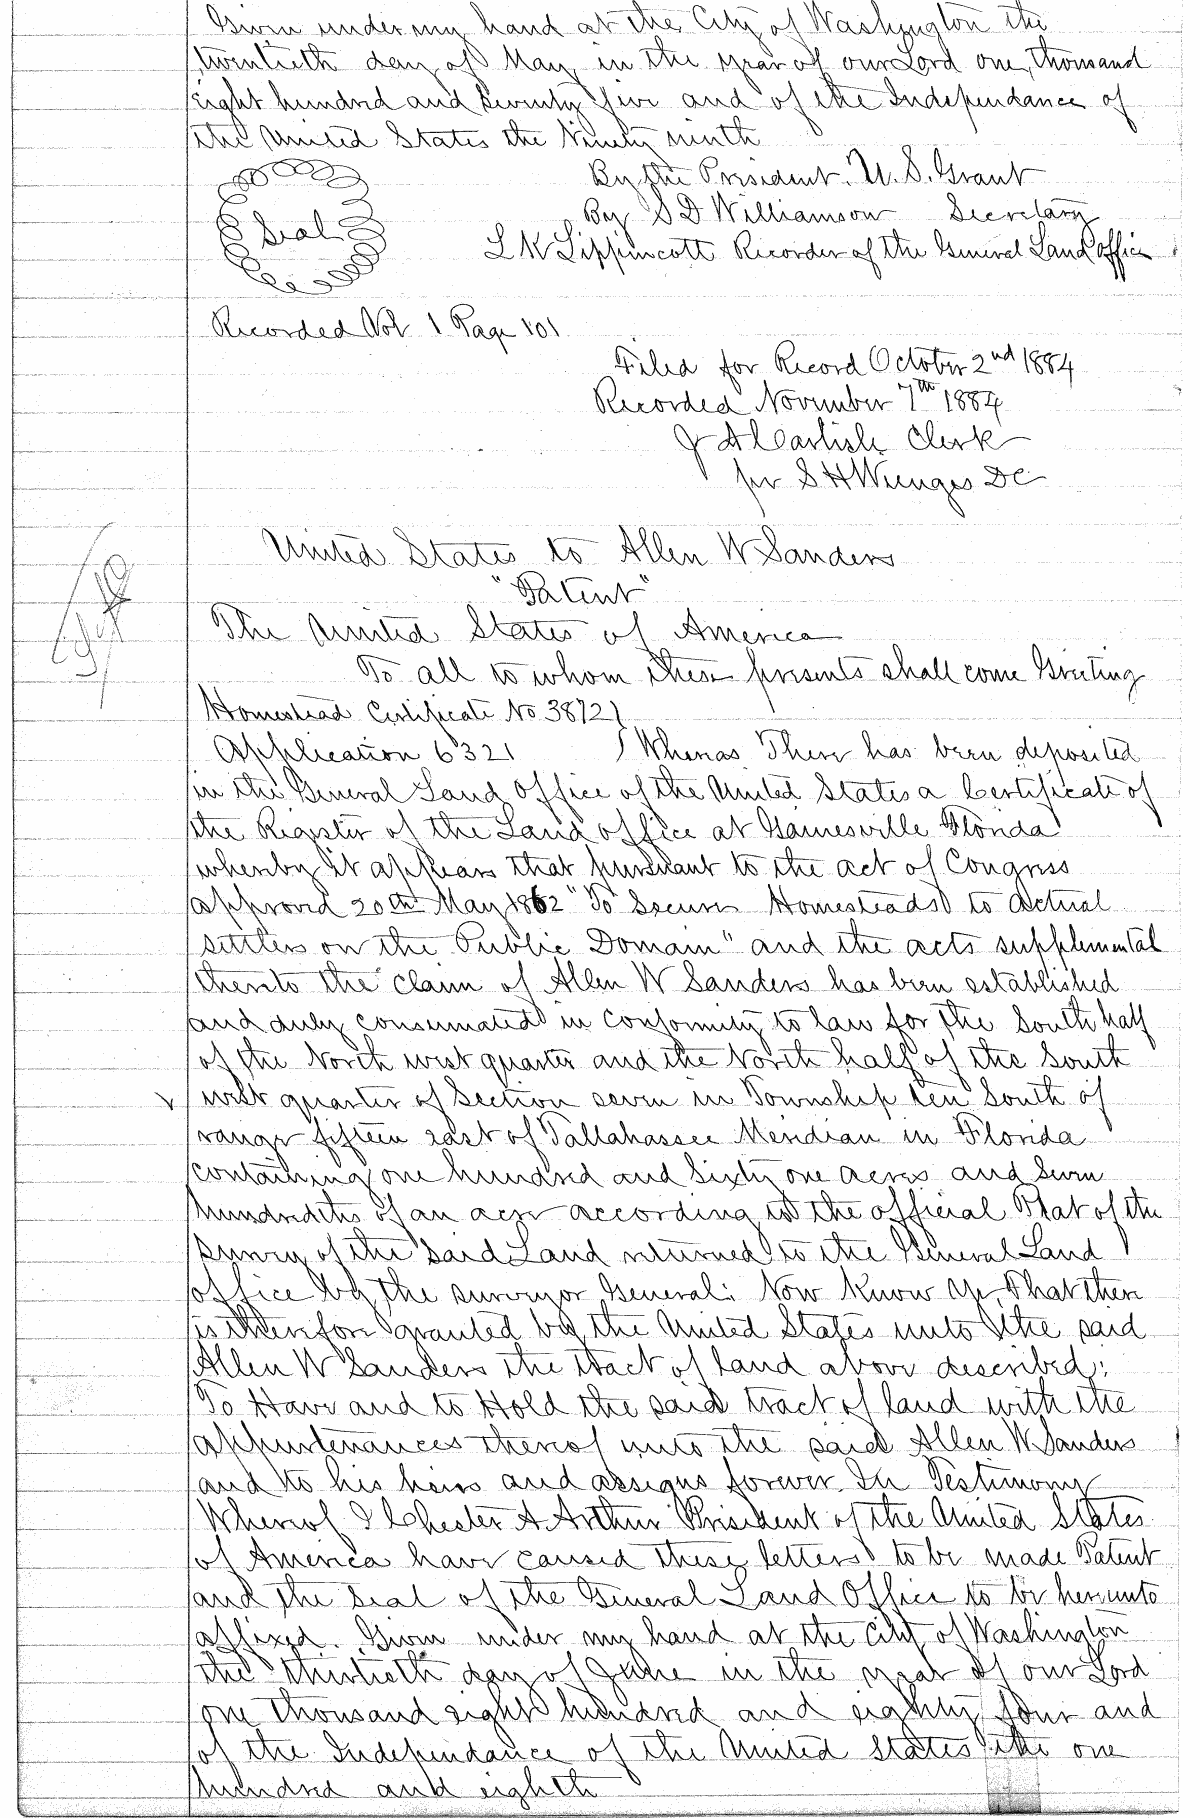 Given under my hand at the City of Washington the
twentieth day of May in the year of our Lord one thousand
eight hundred and seventy five and of the Independance of
the United States the Ninety ninth
By the President. U. S. Grant
By S D Williamson Secretary
Seal
L K Lippincott Recorder of the General Land office
Recorded Vol 1 Page 101
Filed for Record October 2nd 1884
Recorded November 7th 1884
J A Carlisle Clerk
per S H Wienges DC
United States to Allen W Sanders
"Patent"
The United States of America
To all to whom these presents shall come Greeting
Homestead Certificate No. 3872 }
Application 6321 } Whereas There has been deposited
in the General Land Office of the United States a Certificate of
the Register of the Land office at Gainesville Florida
whereby it appears that pursuant to the act of Congress
approved 20th May 1862 "To Secure Homesteads to actual
settlers on the Public Domain" and the acts supplemental
thereto the claim of Allen W Sanders has been established
and duly consumated in conformity to law for the South half
of the North west quarter and the North half of the South
west quarter of Section seven in Township ten South of
range fifteen east of Tallahassee Meridian in Florida
containing one hundred and sixty one acres and seven
hundredths of an acre according to the official Plat of the
survey of the said Land returned to the General Land
office by the surveyor General: Now Know Ye, That there
is therefore granted by the United States unto the said
Allen W Sanders the tract of land above described:
To Have and to Hold the said tract of land with the
appurtenances thereof unto the said Allen W Sanders
and to his heirs and assigns forever. In Testimony
Whereof I Chester A. Arthur President of the United States
of America have caused these letters to be made Patent
and the seal of the General Land Office to be hereunto
affixed. Given under my hand at the City of Washington
the thirtieth day of June in the year of our Lord
one thousand eight hundred and eighty four and
of the Independance of the United States the one
hundred and eighth